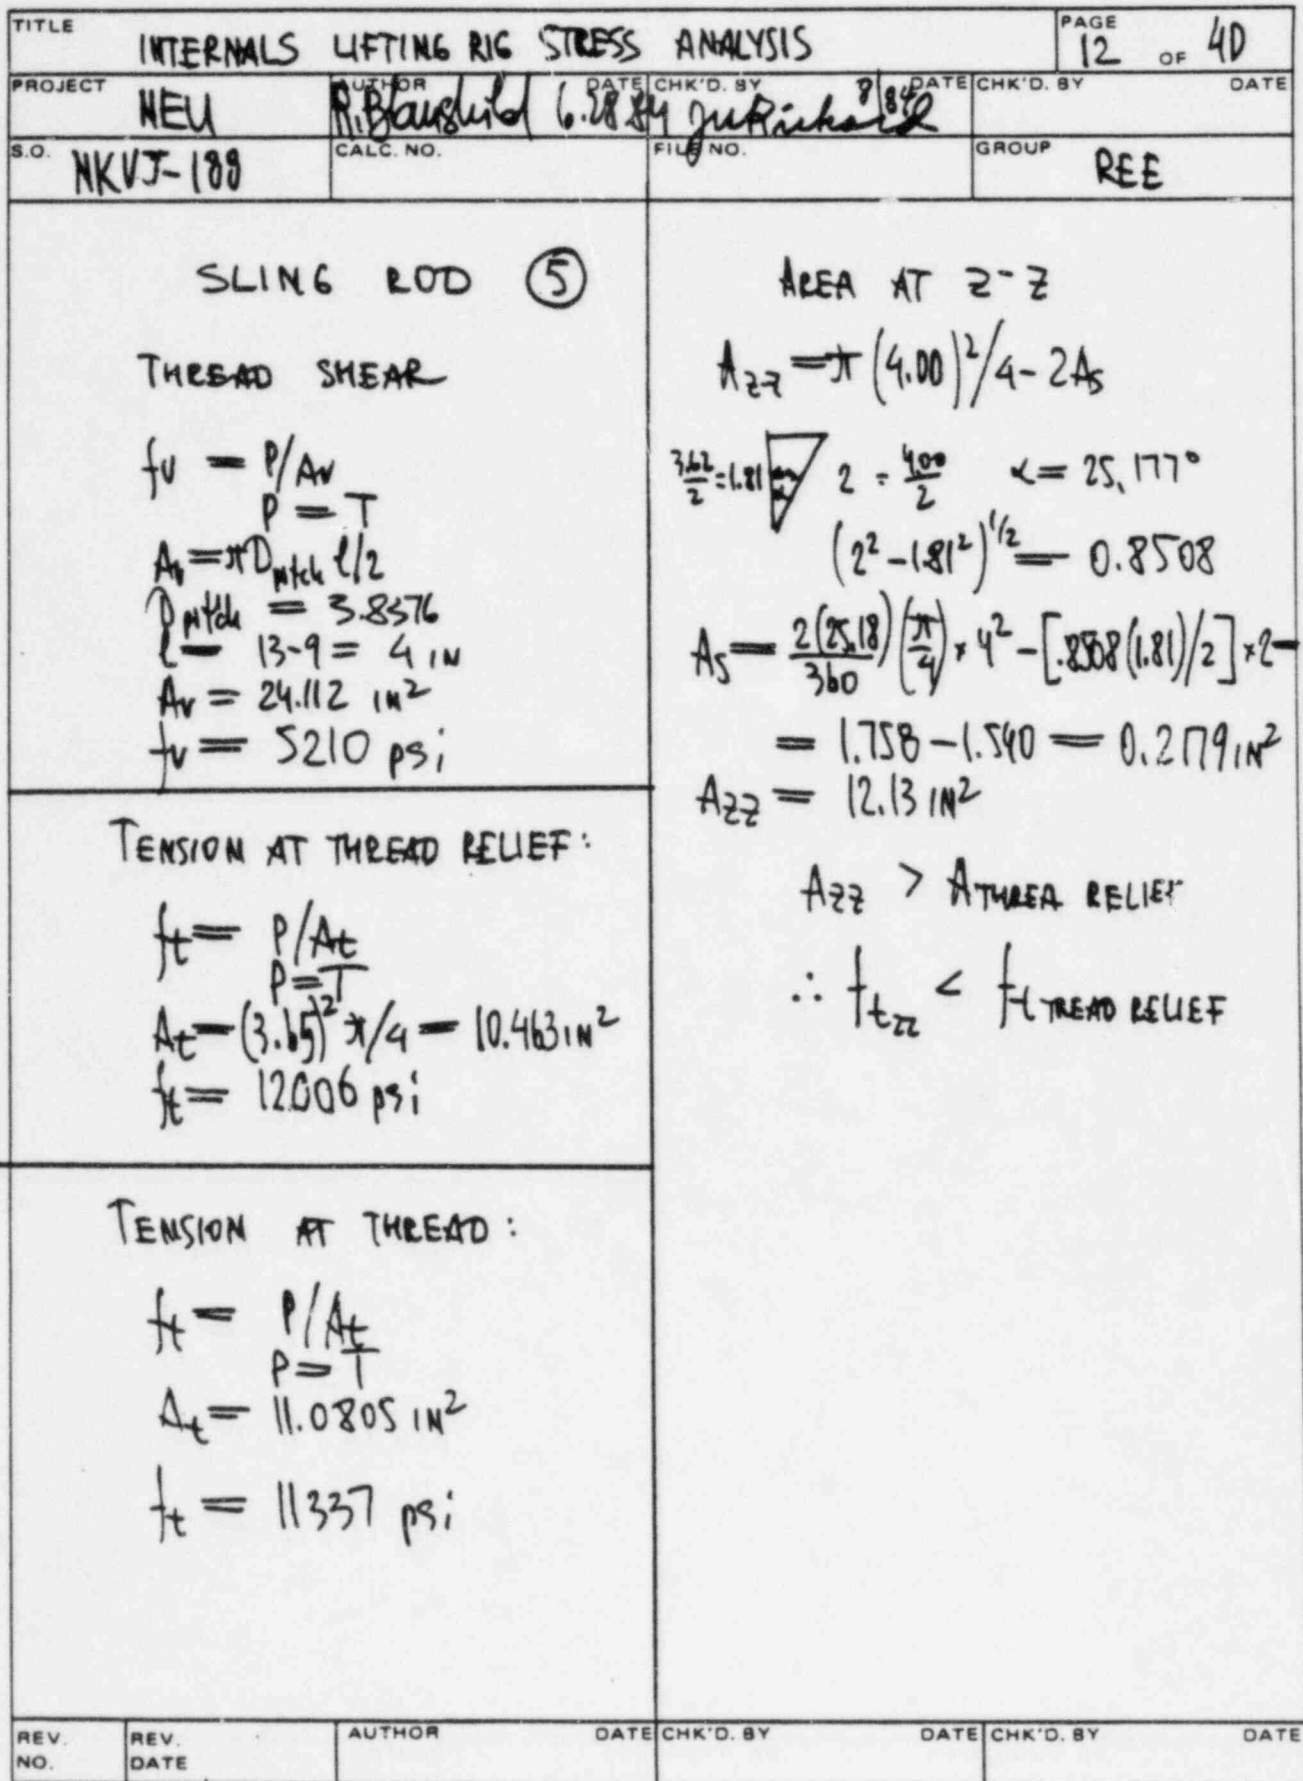 TITLE
INTERNALS LIFTING RIG STRESS ANALYSIS
PAGE
12 OF 40
PROJECT
NEU
AUTHOR DATE
R. Blaushild 6.28.84
CHK'D. BY DATE
8/84
CHK'D. BY DATE
S.O.
NKVJ-188
CALC. NO.
FILE NO.
GROUP
REE
SLING ROD ⑤
THREAD SHEAR
fv = P/Av
P = T
Av = π Dpitch l/2
Dpitch = 3.8376
l = 13-9 = 4 IN
Av = 24.112 IN²
fv = 5210 psi
TENSION AT THREAD RELIEF:
ft = P/At
P = T
At = (3.65)² π/4 = 10.463 IN²
ft = 12006 psi
TENSION AT THREAD:
ft = P/At
P = T
At = 11.0805 IN²
ft = 11337 psi
AREA AT Z-Z
Azz = π (4.00)²/4 - 2As
3.62/2 = 1.81 α 2 = 4.00/2 α = 25.177°
(2² - 1.81²)^1/2 = 0.8508
As = 2(25.18)/360 (π/4) × 4² - [.8508(1.81)/2] × 2 =
= 1.758 - 1.540 = 0.2179 IN²
Azz = 12.13 IN²
Azz > A THREA RELIEF
∴ ftzz < ft TREAD RELIEF
REV. NO.
REV. DATE
AUTHOR DATE
CHK'D. BY DATE
CHK'D. BY DATE